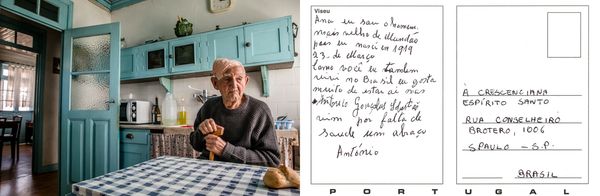 Viseu
Ana eu sou o homem
mais velho de Mundão
pois eu nasci em 1919
23. de Março
Como você eu tambem
vivi no Brasil eu gosta
muito de estar ai mas
António Gonçalves
vim por falta de
saude um abraço
António
À CRESCENCIANA
ESPÍRITO SANTO
RUA CONSELHEIRO
BROTERO, 1006
SPAULO - S.P.
BRASIL
PORTUGAL